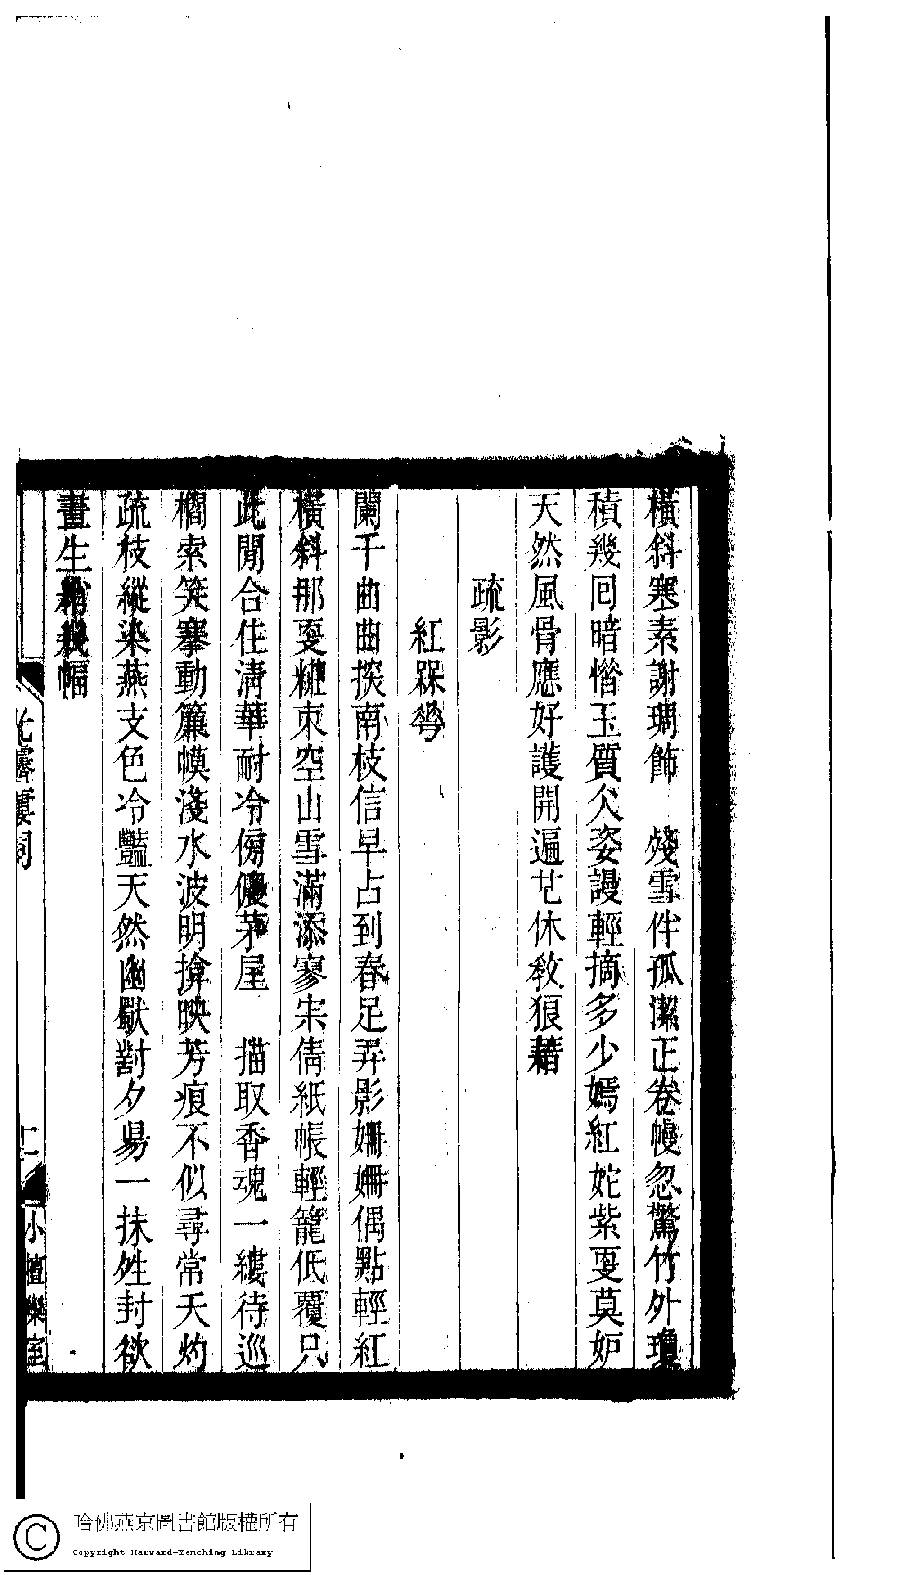 橫斜寒素謝琱飾　殘雪伴孤潔正卷幔忽驚竹外瓊
積幾回暗惜玉質仌姿謾輕摘多少嫣紅姹紫叓莫妒
天然風骨應好護開遍芒休敎狼藉
疏影
紅槑蕚
闌干曲曲探南枝信早占到春足弄影姍姍偶點輕紅
橫斜那叓糚束空山雪滿添寥宋倩紙帳輕籠低覆只
此閒合住淸華耐冷傍儂茅屋　描取香魂一縷待巡
櫩索笑搴動簾幙淺水波明揜映芳痕不似尋常夭灼
疏枝縱染燕支色冷豔天然幽獸對夕昜一抹殅封欲
畫生綃幾幅
小檀欒室
哈佛燕京圖書館版權所有
Copyright Harvard-Yenching Library